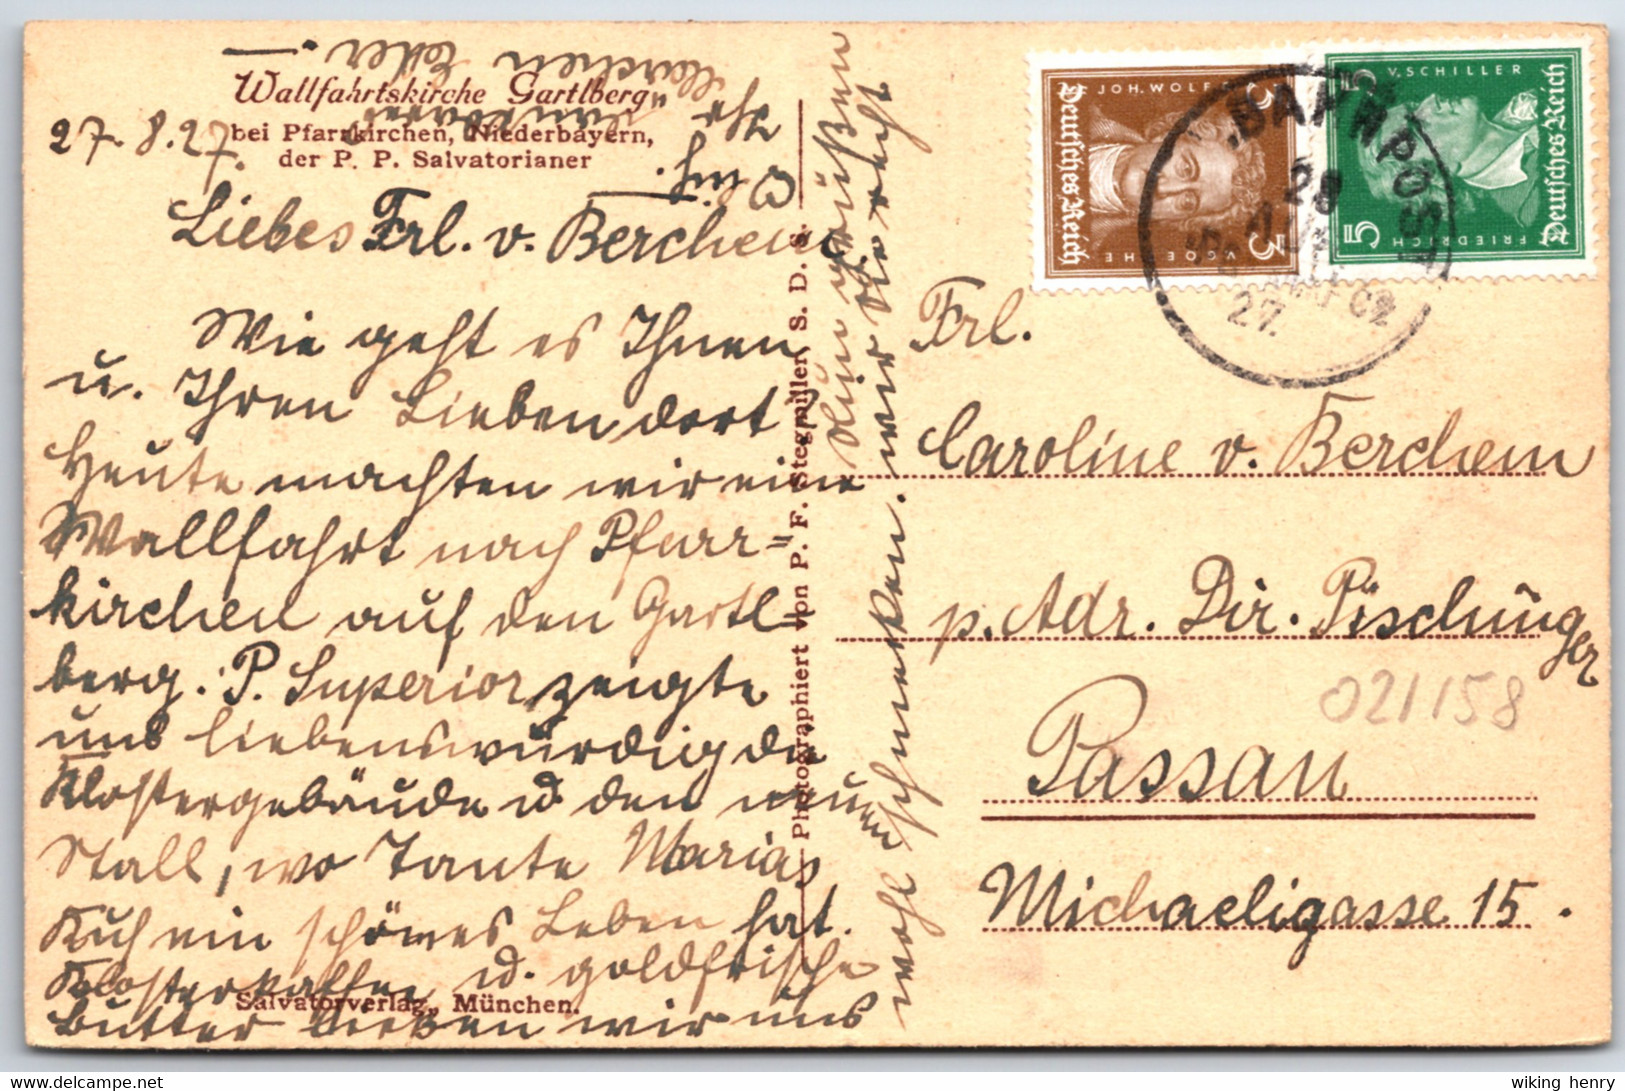 Wallfahrtskirche Gartlberg
bei Pfarrkirchen, Niederbayern,
der P. P. Salvatorianer
27. 8. 27.
Liebes Frl. v. Berchem
Wie geht es Ihnen
u. Ihren Lieben dort?
Heute machten wir eine
Wallfahrt nach Pfarr=
kirchen auf den Gartl=
berg. P. Superior zeigte
uns liebenswürdig die
Klostergebäude u. den neuen
Stall, wo Tante Marias
Kuh ein schönes Leben hat.
Klosterkaffee u. goldfrische
Butter ließen wir uns
wohl schmecken.
Nun grüßen
wir Sie recht
Salvatorverlag, München.
Photographiert von P. F. Stegmiller S. D. S.
JOH. WOLFG. V GOETHE
Deutsches Reich
3
3
FRIEDRICH V. SCHILLER
Deutsches Reich
5
5
BAHNPOST
28
27.
Frl.
Caroline v. Berchem
p. Adr. Dir. Pischinger
Passau
Michaeligasse 15.
021158
wiking henry